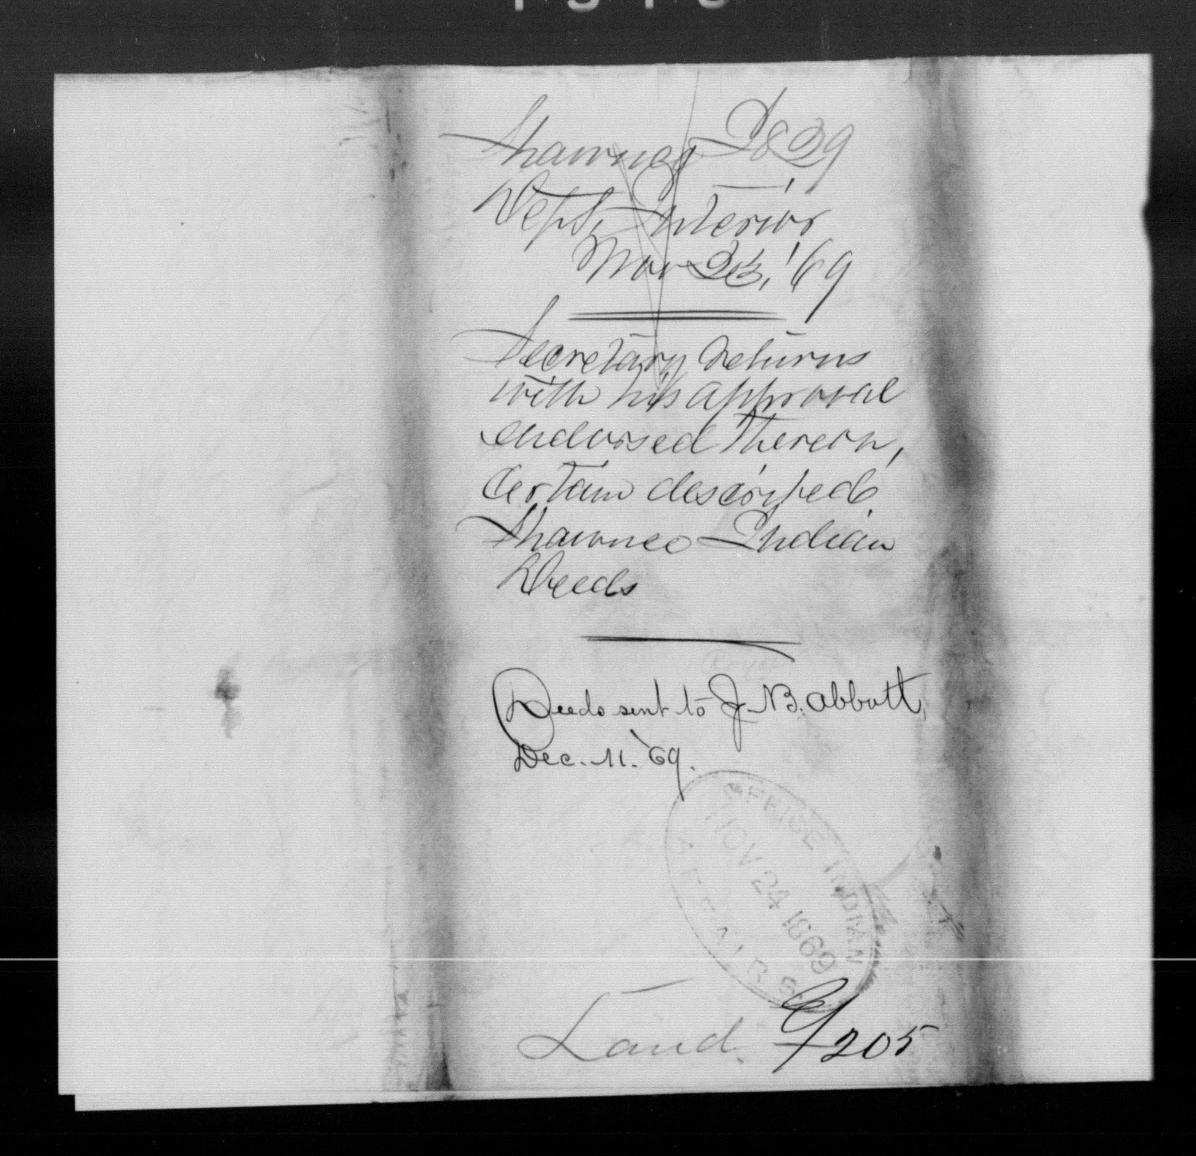 Shawnee I 839
Dept. Interior
Nov 23, '69
Secretary returns
with his approval
endorsed thereon,
certain described
Shawnee Indian
Deeds
Deeds sent to J. B. Abbott,
Dec. 11. '69.
OFFICE INDIAN
NOV 24 1869
AFFAIRS
Land. 205